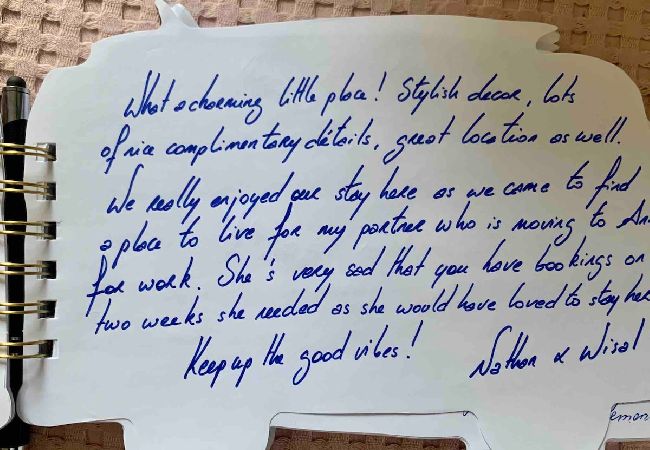 What a charming little place! Stylish decor, lots
of nice complimentary détails, great location as well.
We really enjoyed our stay here as we came to find
a place to live for my partner who is moving to An
for work. She's very sad that you have bookings on
two weeks she needed as she would have loved to stay her
Keep up the good vibes!
Nathan & Wisal